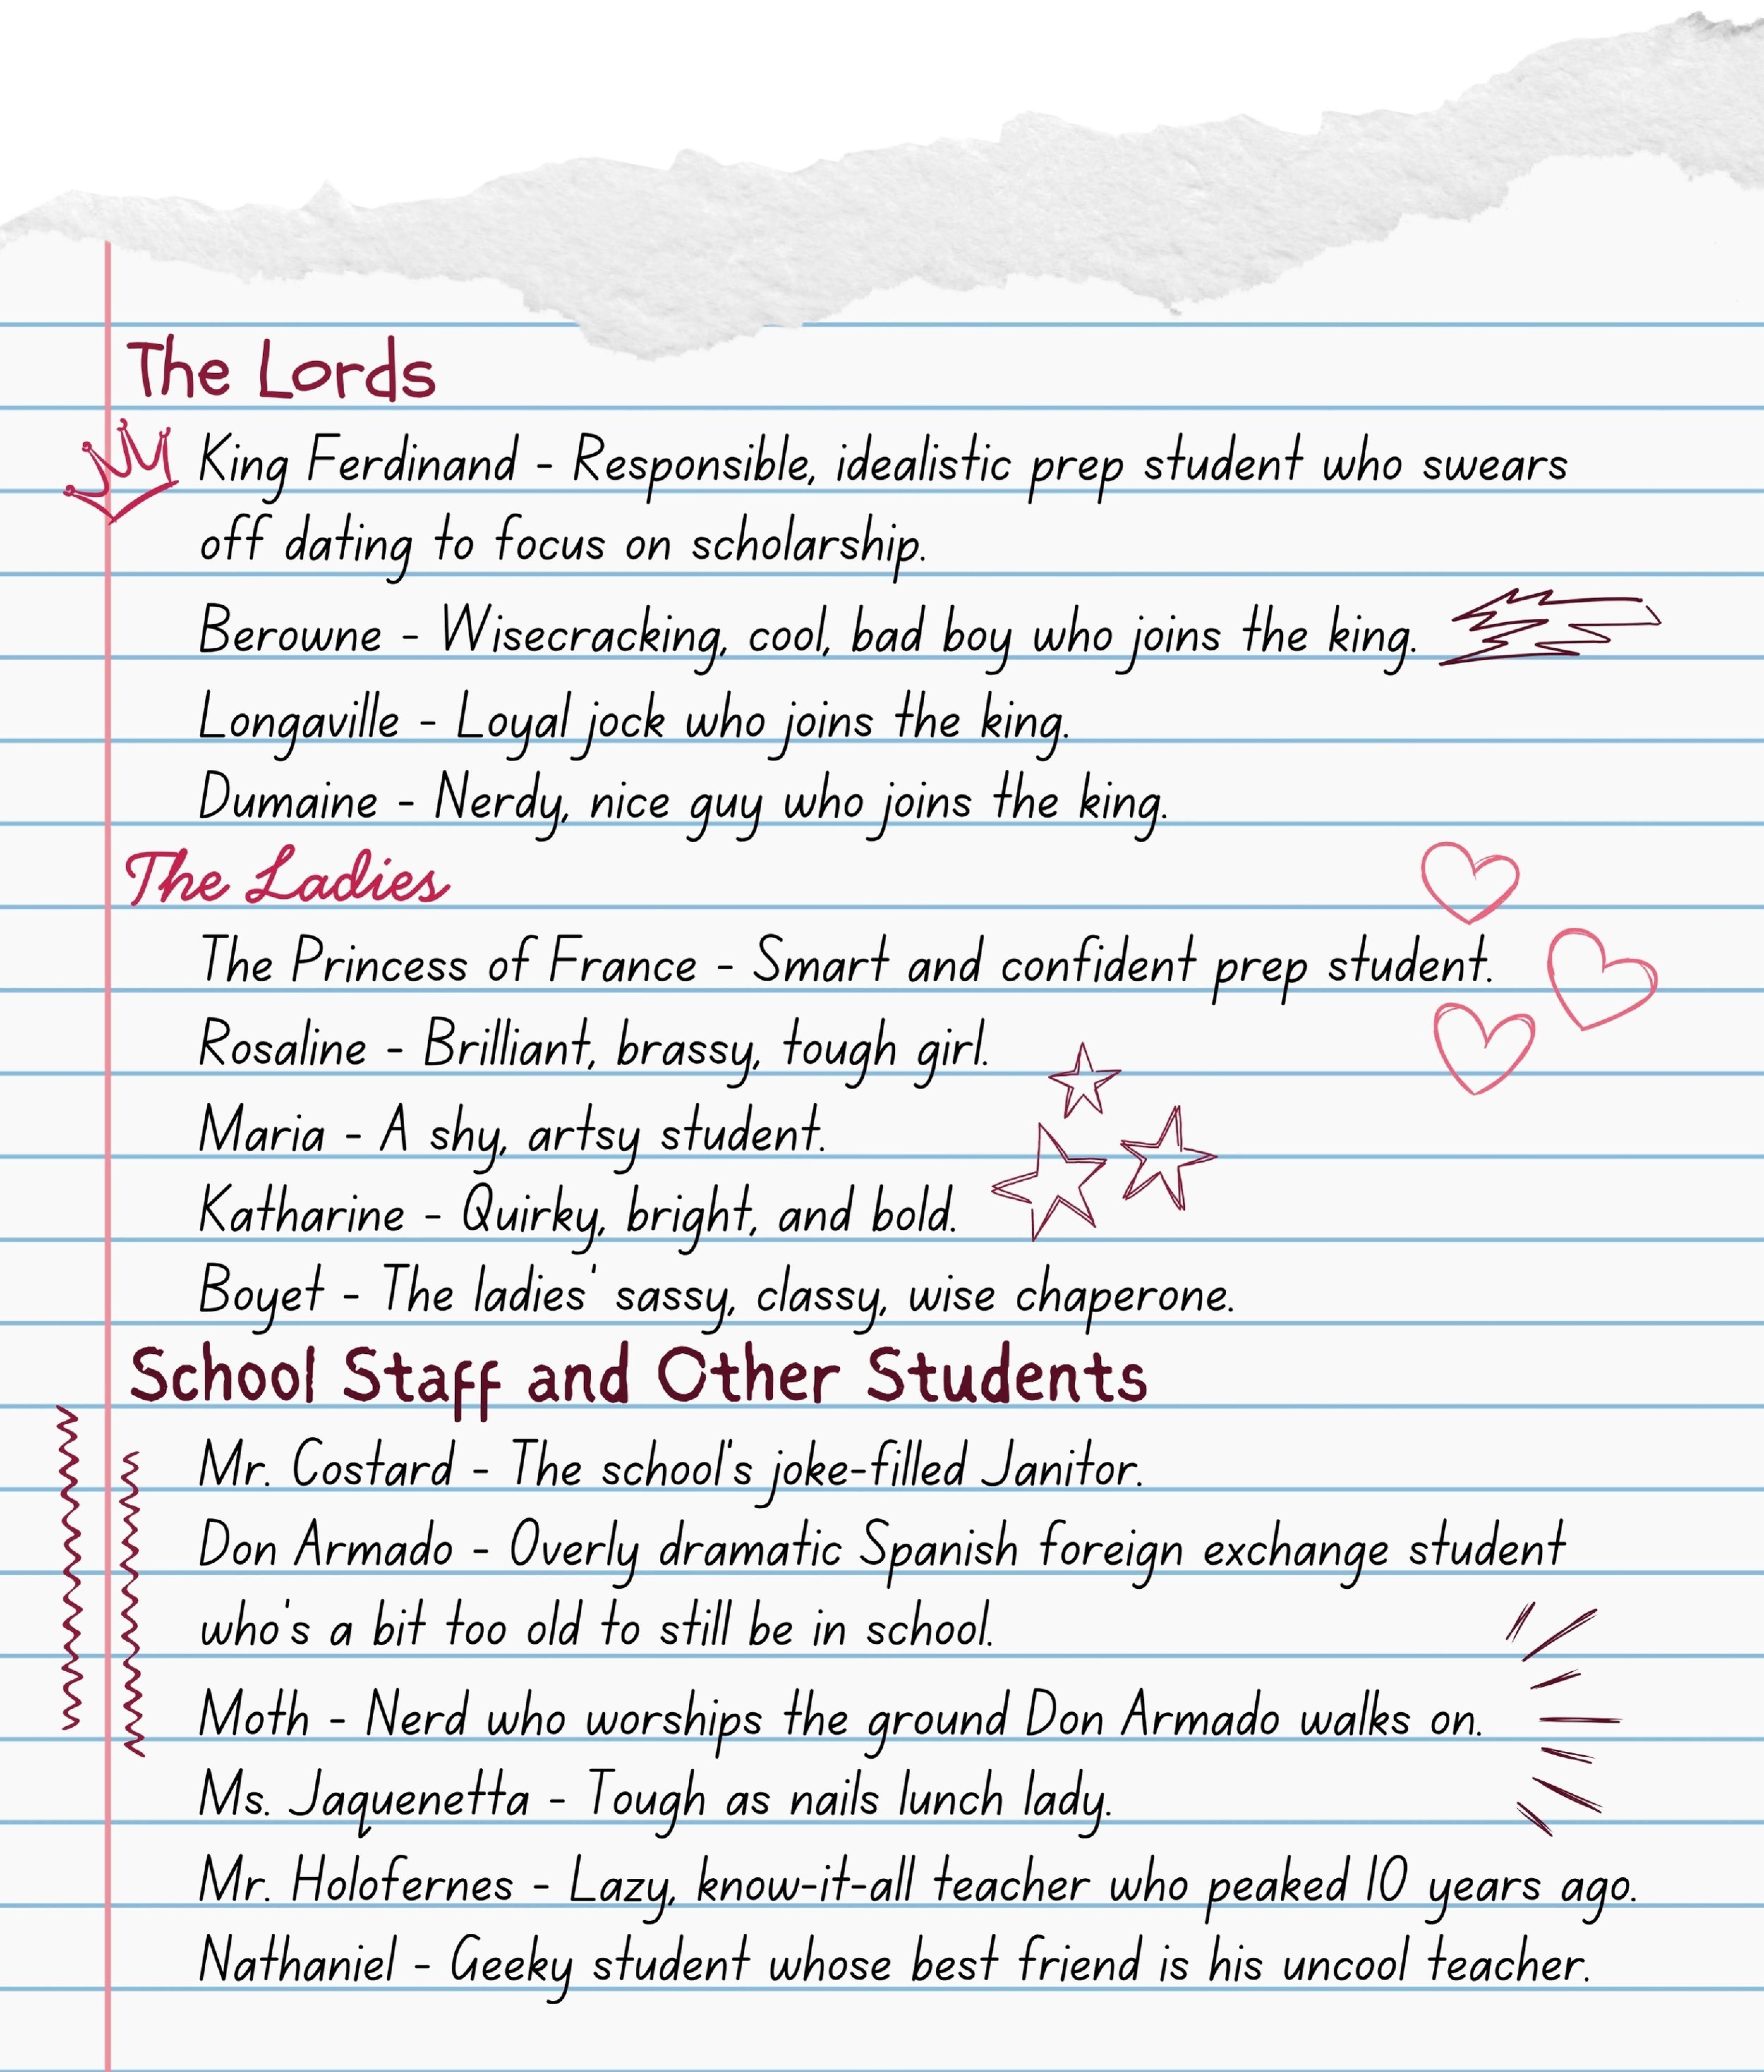 The Lords
King Ferdinand - Responsible, idealistic prep student who swears
off dating to focus on scholarship.
Berowne - Wisecracking, cool, bad boy who joins the king.
Longaville - Loyal jock who joins the king.
Dumaine - Nerdy, nice guy who joins the king.
The Ladies
The Princess of France - Smart and confident prep student.
Rosaline - Brilliant, brassy, tough girl.
Maria - A shy, artsy student.
Katharine - Quirky, bright, and bold.
Boyet - The ladies' sassy, classy, wise chaperone.
School Staff and Other Students
Mr. Costard - The school's joke-filled Janitor.
Don Armado - Overly dramatic Spanish foreign exchange student
who's a bit too old to still be in school.
Moth - Nerd who worships the ground Don Armado walks on.
Ms. Jaquenetta - Tough as nails lunch lady.
Mr. Holofernes - Lazy, know-it-all teacher who peaked 10 years ago.
Nathaniel - Geeky student whose best friend is his uncool teacher.